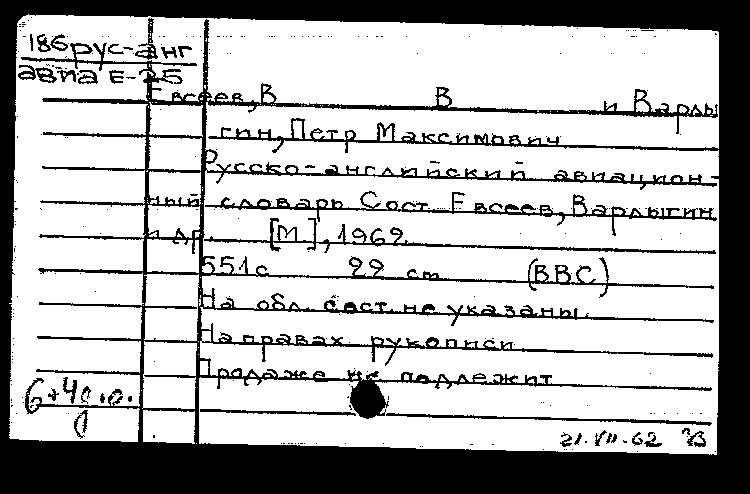 186рус-анг
авиа Е-25
Евсеев, В В и Варлы
гин, Петр Максимович
Русско-английский авиацион-
ный словарь Сост Евсеев, Варлыгин
и др. [М.], 1962.
551с 22 см (ВВС)
На обл. сост. не указаны.
На правах рукописи
Продаже не подлежит
6+4д.о.
21.VII.62